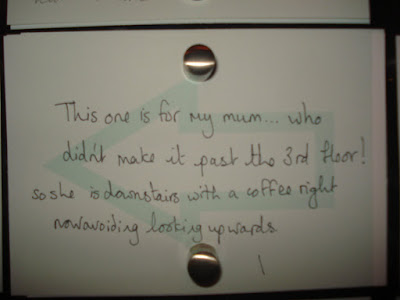 This one is for my mum... who
didn't make it past the 3rd floor!
so she is downstairs with a coffee right
now avoiding looking upwards